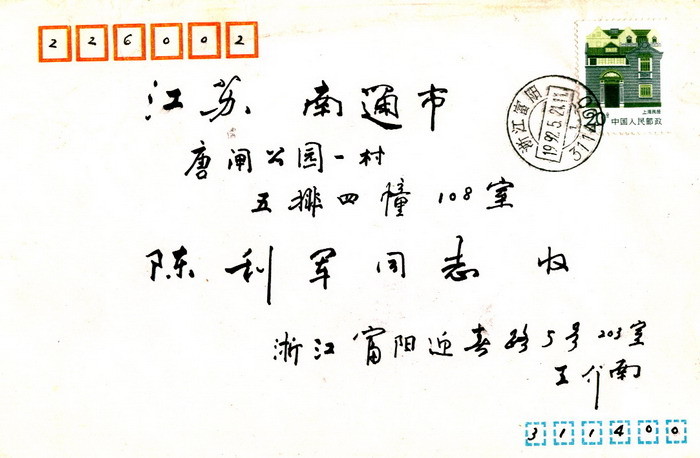 226002
江苏 南通市
唐闸公园一村
五排四幢 108室
陈利军同志 收
浙江富阳迎春路5号203室
王介南
311400
浙江富阳
1992.5.21.11
上海民居
20分
中国人民邮政